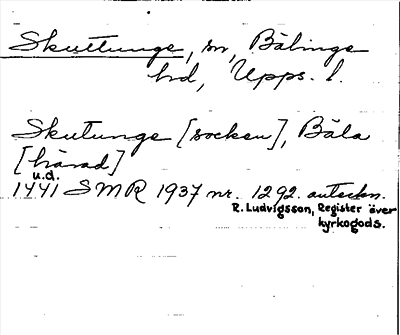 Skuttunge, sn, Bälinge
hd, Upps. l.
Skutunge [socken], Bäla
[härad]
u.d.
1441 SMR 1937 nr. 1292. anteckn.
R. Ludvigsson, Register över
kyrkogods.